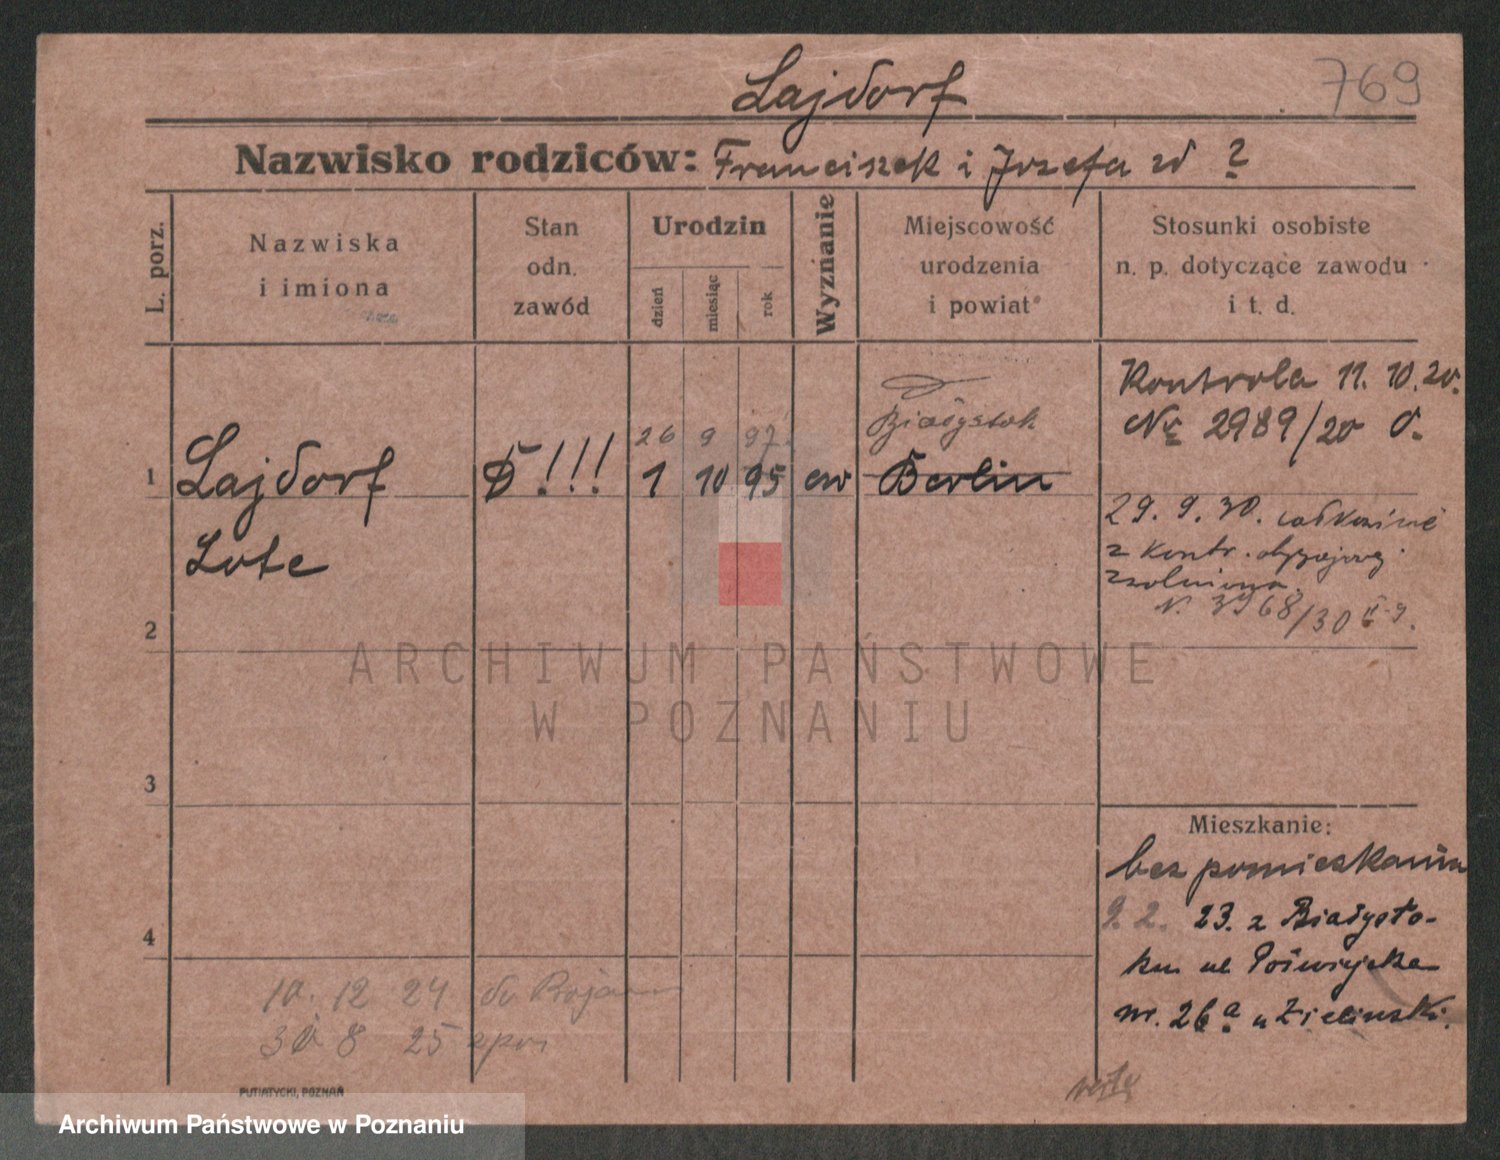 Lajdorf 769
Nazwisko rodziców: Franciszek i Józefa zd ?
L. porz.
Nazwiska
i imiona
Stan
odn.
zawód
Urodzin
dzień
miesiąc
rok
Wyznanie
Miejscowość
urodzenia
i powiat
Stosunki osobiste
n. p. dotyczące zawodu
i t. d.
Kontrola 11. 10. 20.
Nr 2989/20 O.
26 9 97. Białystok
1 Lajdorf !!! 1 10 95 ew Berlin
Lote
29. 9. 30. całkowicie
z kontr. obyczajowej
zwolniona.
N. 3968/30
2
ARCHIWUM PAŃSTWOWE
W POZNANIU
3
Mieszkanie:
bez pomieszkania
9. 2. 23. z Białysto-
ku ul
nr. 26a u Zielinski.
4
10. 12 24 do
30 8 25
verte
PUTIATYCKI, POZNAŃ
Archiwum Państwowe w Poznaniu